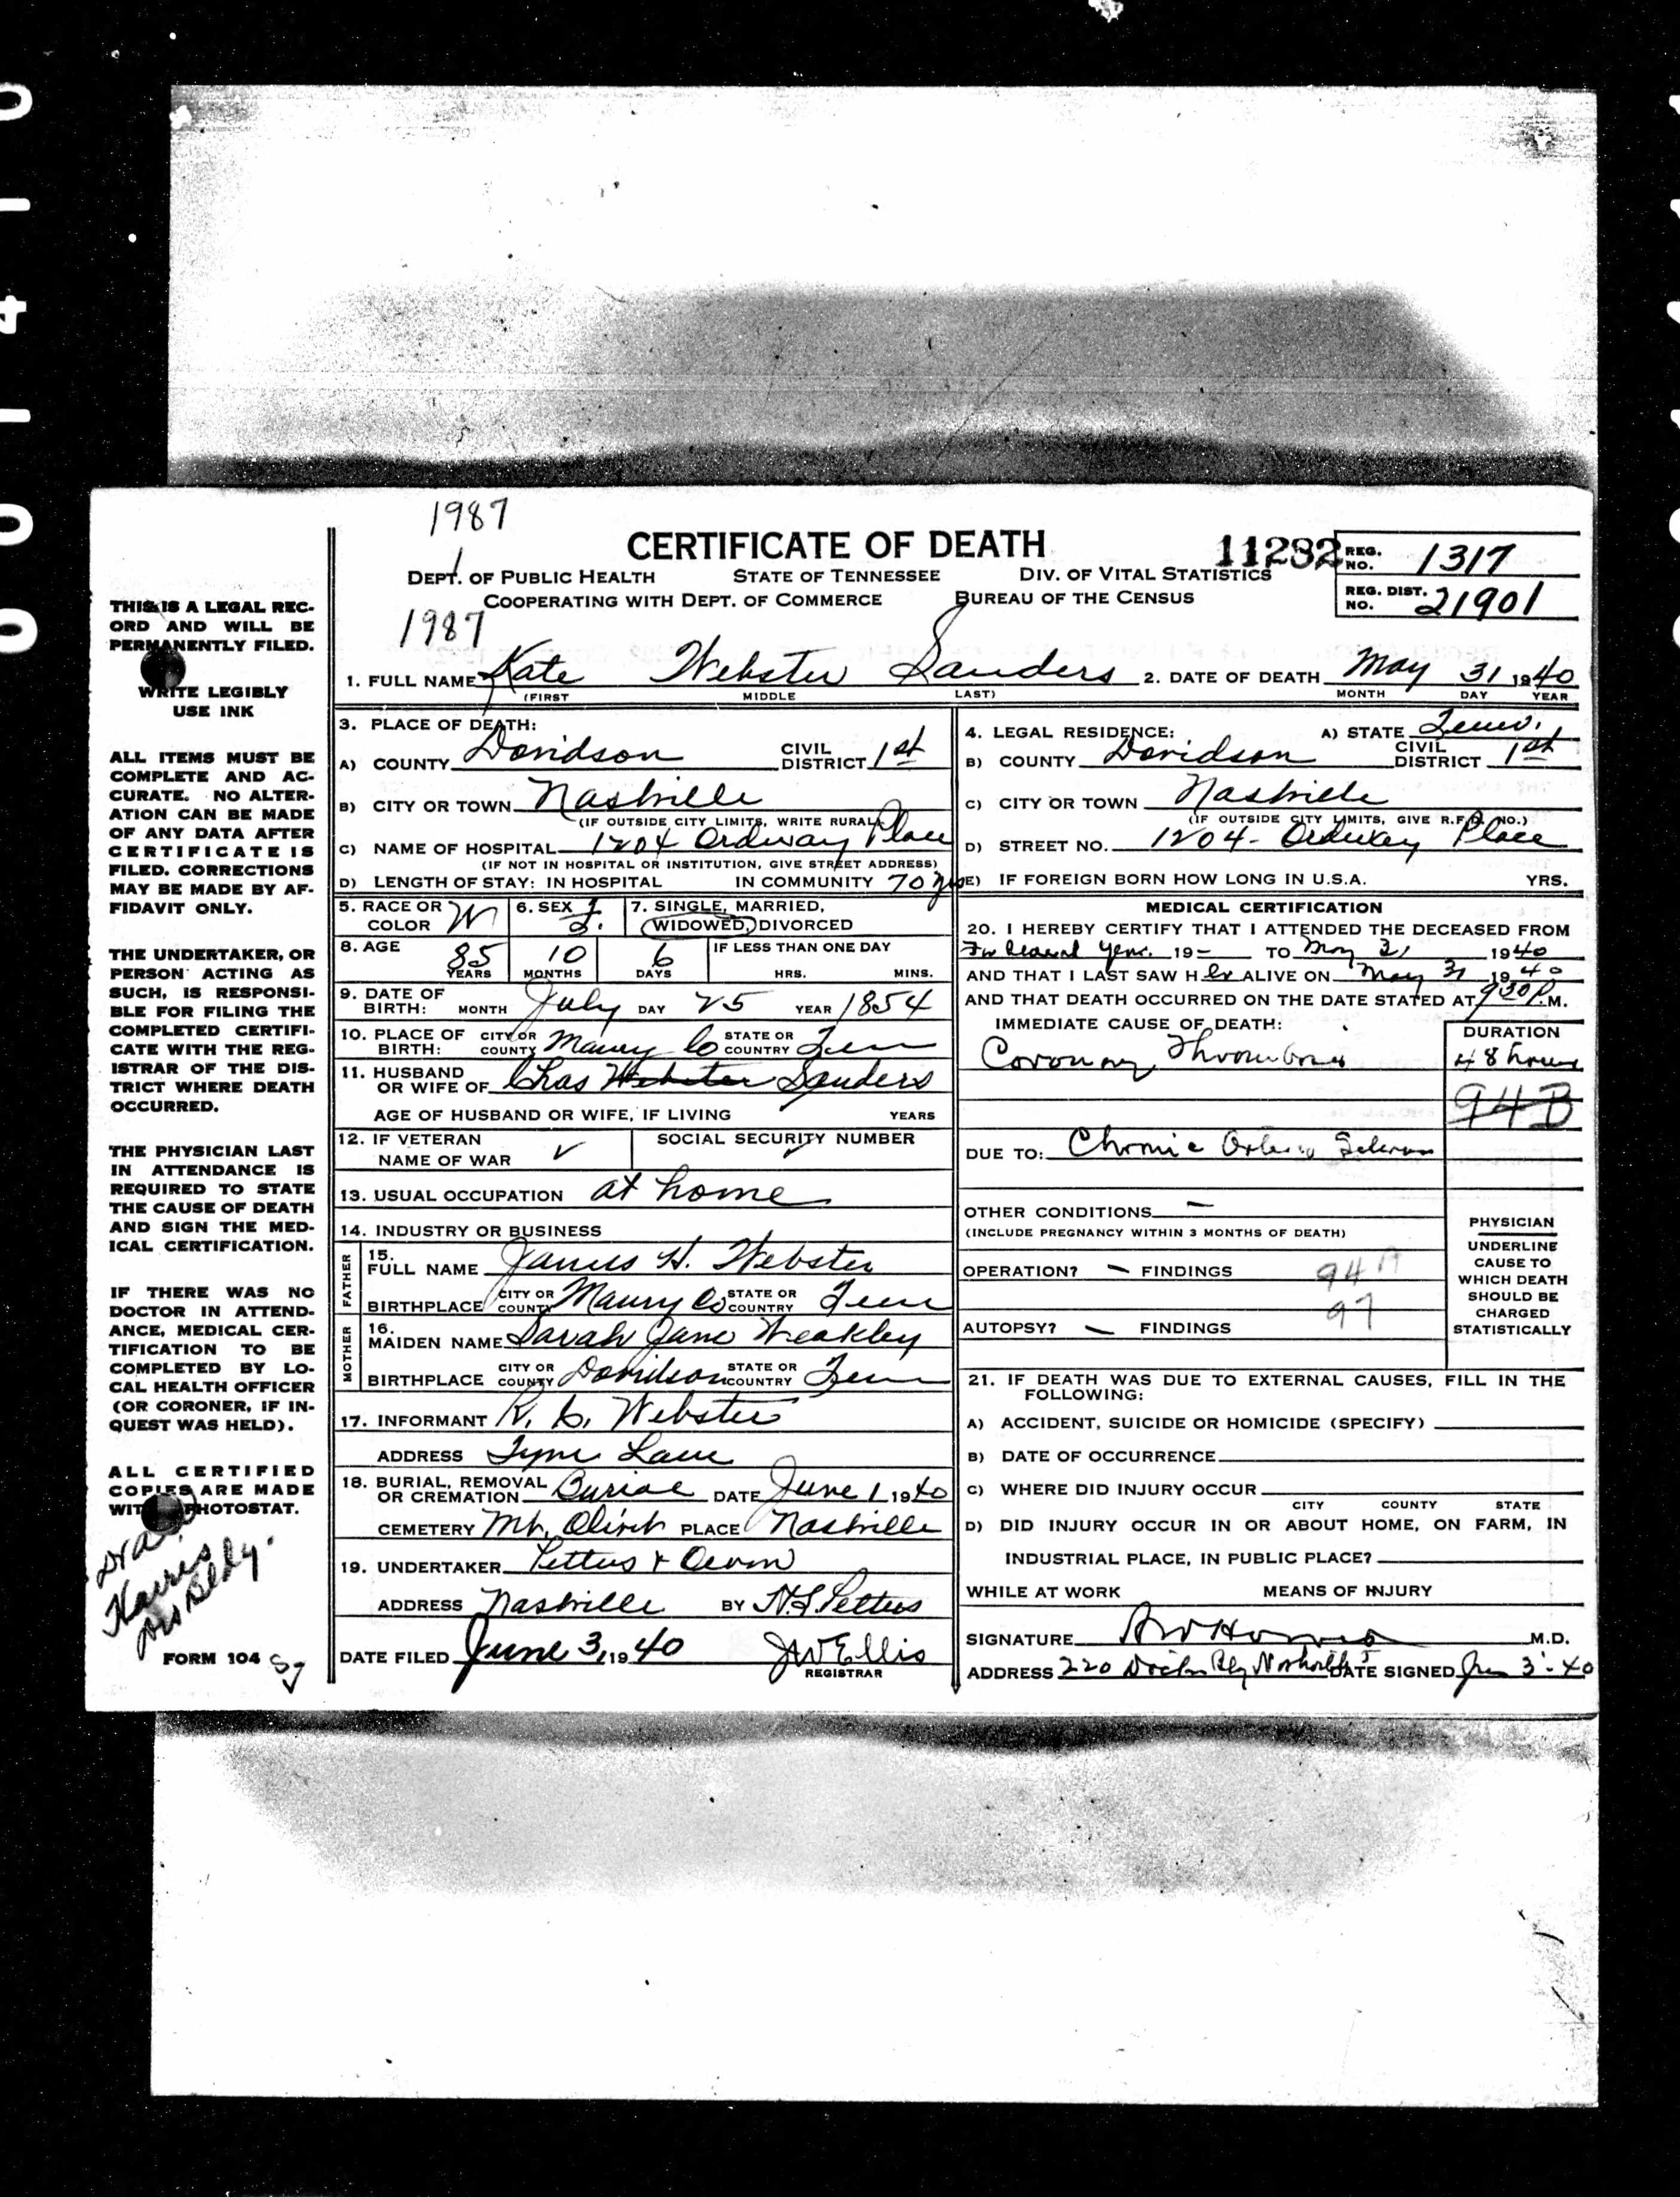 1987
CERTIFICATE OF DEATH
11282
REG. NO. 1317
DEPT. OF PUBLIC HEALTH STATE OF TENNESSEE DIV. OF VITAL STATISTICS
COOPERATING WITH DEPT. OF COMMERCE BUREAU OF THE CENSUS
REG. DIST. NO. 21901
1987
1. FULL NAME Kate Webster Sanders 2. DATE OF DEATH May 31 1940
(FIRST MIDDLE LAST) MONTH DAY YEAR
THIS IS A LEGAL REC-
ORD AND WILL BE
PERMANENTLY FILED.
WRITE LEGIBLY
USE INK
ALL ITEMS MUST BE
COMPLETE AND AC-
CURATE. NO ALTER-
ATION CAN BE MADE
OF ANY DATA AFTER
CERTIFICATE IS
FILED. CORRECTIONS
MAY BE MADE BY AF-
FIDAVIT ONLY.
THE UNDERTAKER, OR
PERSON ACTING AS
SUCH, IS RESPONSI-
BLE FOR FILING THE
COMPLETED CERTIFI-
CATE WITH THE REG-
ISTRAR OF THE DIS-
TRICT WHERE DEATH
OCCURRED.
THE PHYSICIAN LAST
IN ATTENDANCE IS
REQUIRED TO STATE
THE CAUSE OF DEATH
AND SIGN THE MED-
ICAL CERTIFICATION.
IF THERE WAS NO
DOCTOR IN ATTEND-
ANCE, MEDICAL CER-
TIFICATION TO BE
COMPLETED BY LO-
CAL HEALTH OFFICER
(OR CORONER, IF IN-
QUEST WAS HELD).
ALL CERTIFIED
COPIES ARE MADE
WITH PHOTOSTAT.
FORM 104
3. PLACE OF DEATH:
A) COUNTY Davidson CIVIL DISTRICT 1st
B) CITY OR TOWN Nashville
(IF OUTSIDE CITY LIMITS, WRITE RURAL)
C) NAME OF HOSPITAL 1204 Ordway Place
(IF NOT IN HOSPITAL OR INSTITUTION, GIVE STREET ADDRESS)
D) LENGTH OF STAY: IN HOSPITAL IN COMMUNITY 70 yrs
5. RACE OR COLOR W 6. SEX F. 7. SINGLE, MARRIED, WIDOWED, DIVORCED
8. AGE 85 10 6 IF LESS THAN ONE DAY
YEARS MONTHS DAYS HRS. MINS.
9. DATE OF BIRTH: MONTH July DAY 25 YEAR 1854
10. PLACE OF BIRTH: CITY OR COUNTY Maury Co STATE OR COUNTRY Tenn
11. HUSBAND OR WIFE OF Chas Webster Sanders
AGE OF HUSBAND OR WIFE, IF LIVING YEARS
12. IF VETERAN NAME OF WAR ✓ SOCIAL SECURITY NUMBER ✓
13. USUAL OCCUPATION at home
14. INDUSTRY OR BUSINESS
FATHER
15. FULL NAME James H. Webster
BIRTHPLACE CITY OR COUNTY Maury Co STATE OR COUNTRY Tenn
MOTHER
16. MAIDEN NAME Sarah Jane Weakley
BIRTHPLACE CITY OR COUNTY Davidson STATE OR COUNTRY Tenn
17. INFORMANT R. C. Webster
ADDRESS Tyne Lane
18. BURIAL, REMOVAL OR CREMATION Burial DATE June 1 1940
CEMETERY Mt. Olivet PLACE Nashville
19. UNDERTAKER Pettus & Owen
ADDRESS Nashville BY N.S. Pettus
DATE FILED June 3, 1940 JW Ellis
REGISTRAR
4. LEGAL RESIDENCE: A) STATE Tenn.
B) COUNTY Davidson CIVIL DISTRICT 1st
C) CITY OR TOWN Nashville
(IF OUTSIDE CITY LIMITS, GIVE R.F.D. NO.)
D) STREET NO. 1204- Ordway Place
E) IF FOREIGN BORN HOW LONG IN U.S.A. YRS.
MEDICAL CERTIFICATION
20. I HEREBY CERTIFY THAT I ATTENDED THE DECEASED FROM
For several years 19- TO May 31 1940
AND THAT I LAST SAW HER ALIVE ON May 31 1940
AND THAT DEATH OCCURRED ON THE DATE STATED AT 930 P.M.
IMMEDIATE CAUSE OF DEATH: DURATION
Coronary Thrombosis 48 hours
94B
DUE TO: Chronic Arterio Scleroses
OTHER CONDITIONS -
(INCLUDE PREGNANCY WITHIN 3 MONTHS OF DEATH)
OPERATION? - FINDINGS 94
97
AUTOPSY? - FINDINGS
PHYSICIAN
UNDERLINE
CAUSE TO
WHICH DEATH
SHOULD BE
CHARGED
STATISTICALLY
21. IF DEATH WAS DUE TO EXTERNAL CAUSES, FILL IN THE
FOLLOWING:
A) ACCIDENT, SUICIDE OR HOMICIDE (SPECIFY)
B) DATE OF OCCURRENCE
C) WHERE DID INJURY OCCUR
CITY COUNTY STATE
D) DID INJURY OCCUR IN OR ABOUT HOME, ON FARM, IN
INDUSTRIAL PLACE, IN PUBLIC PLACE?
WHILE AT WORK MEANS OF INJURY
SIGNATURE M.D.
ADDRESS 220 Doctors Bldg Nashville DATE SIGNED 3-40